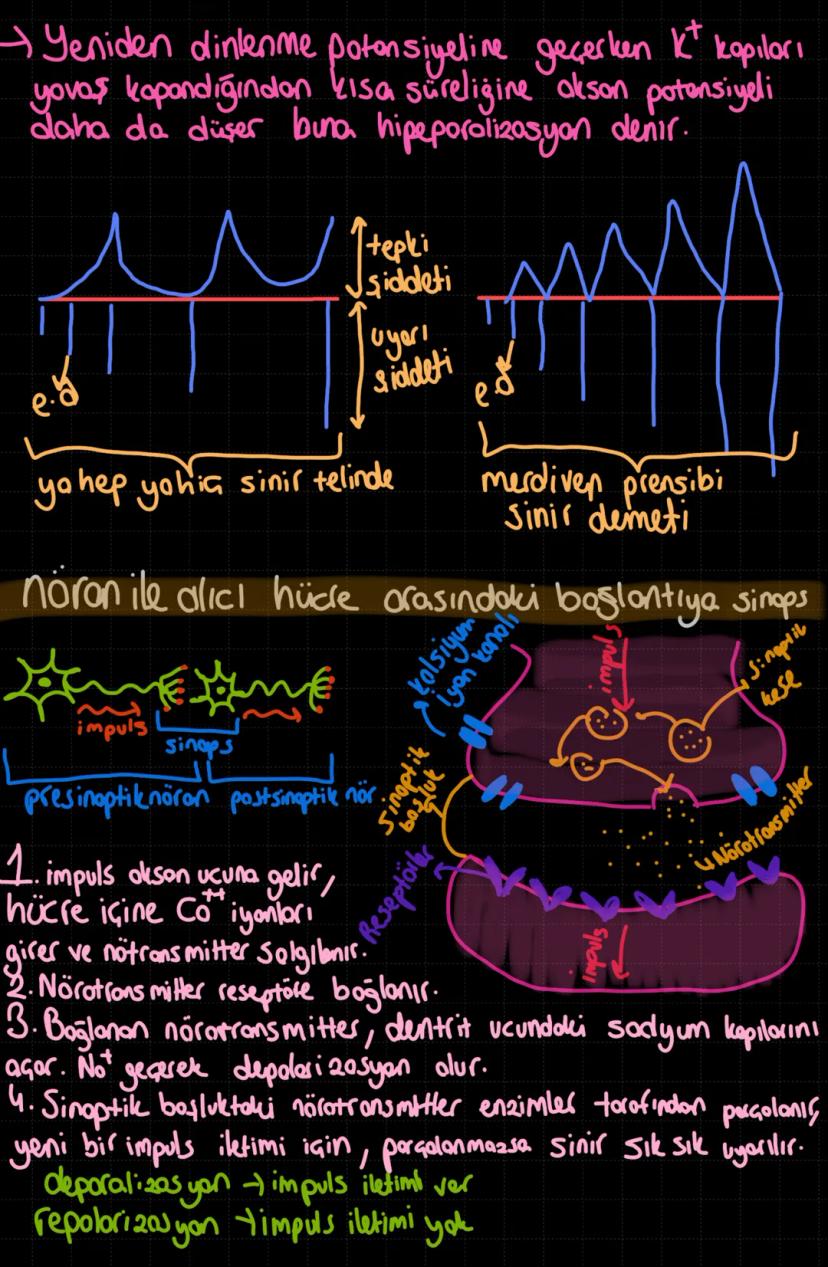 → Yeniden dinlenme potansiyeline geçerken K⁺ kapıları
yavaş kapandığından kısa süreliğine akson potansiyeli
daha da düşer buna hipeporalizasyon denir.
tepki
şiddeti
uyarı
şiddeti
e.d
ya hep ya hiç sinir telinde
e.d
merdiven prensibi
sinir demeti
nöron ile alıcı hücre arasındaki bağlantıya sinaps
impuls
sinaps
presinaptik nöron
postsinaptik nör
kalsiyum
iyon kanalı
impuls
sinaptik
kese
sinaptik
boşluk
Nörotransmitter
Reseptörler
impuls
1. impuls akson ucuna gelir,
hücre içine Ca⁺⁺ iyonları
girer ve nötransmitter salgılanır.
2. Nörotransmitter reseptöre bağlanır.
3. Bağlanan nörotransmitter, dentrit ucundaki sodyum kapılarını
açar. Na⁺ geçerek depolarizasyon olur.
4. Sinaptik boşluktaki nörotransmitter enzimler tarafından parçalanır,
yeni bir impuls iletimi için, parçalanmazsa sinir sık sık uyarılır.
deporalizasyon → impuls iletimi var
repolarizasyon → impuls iletimi yok